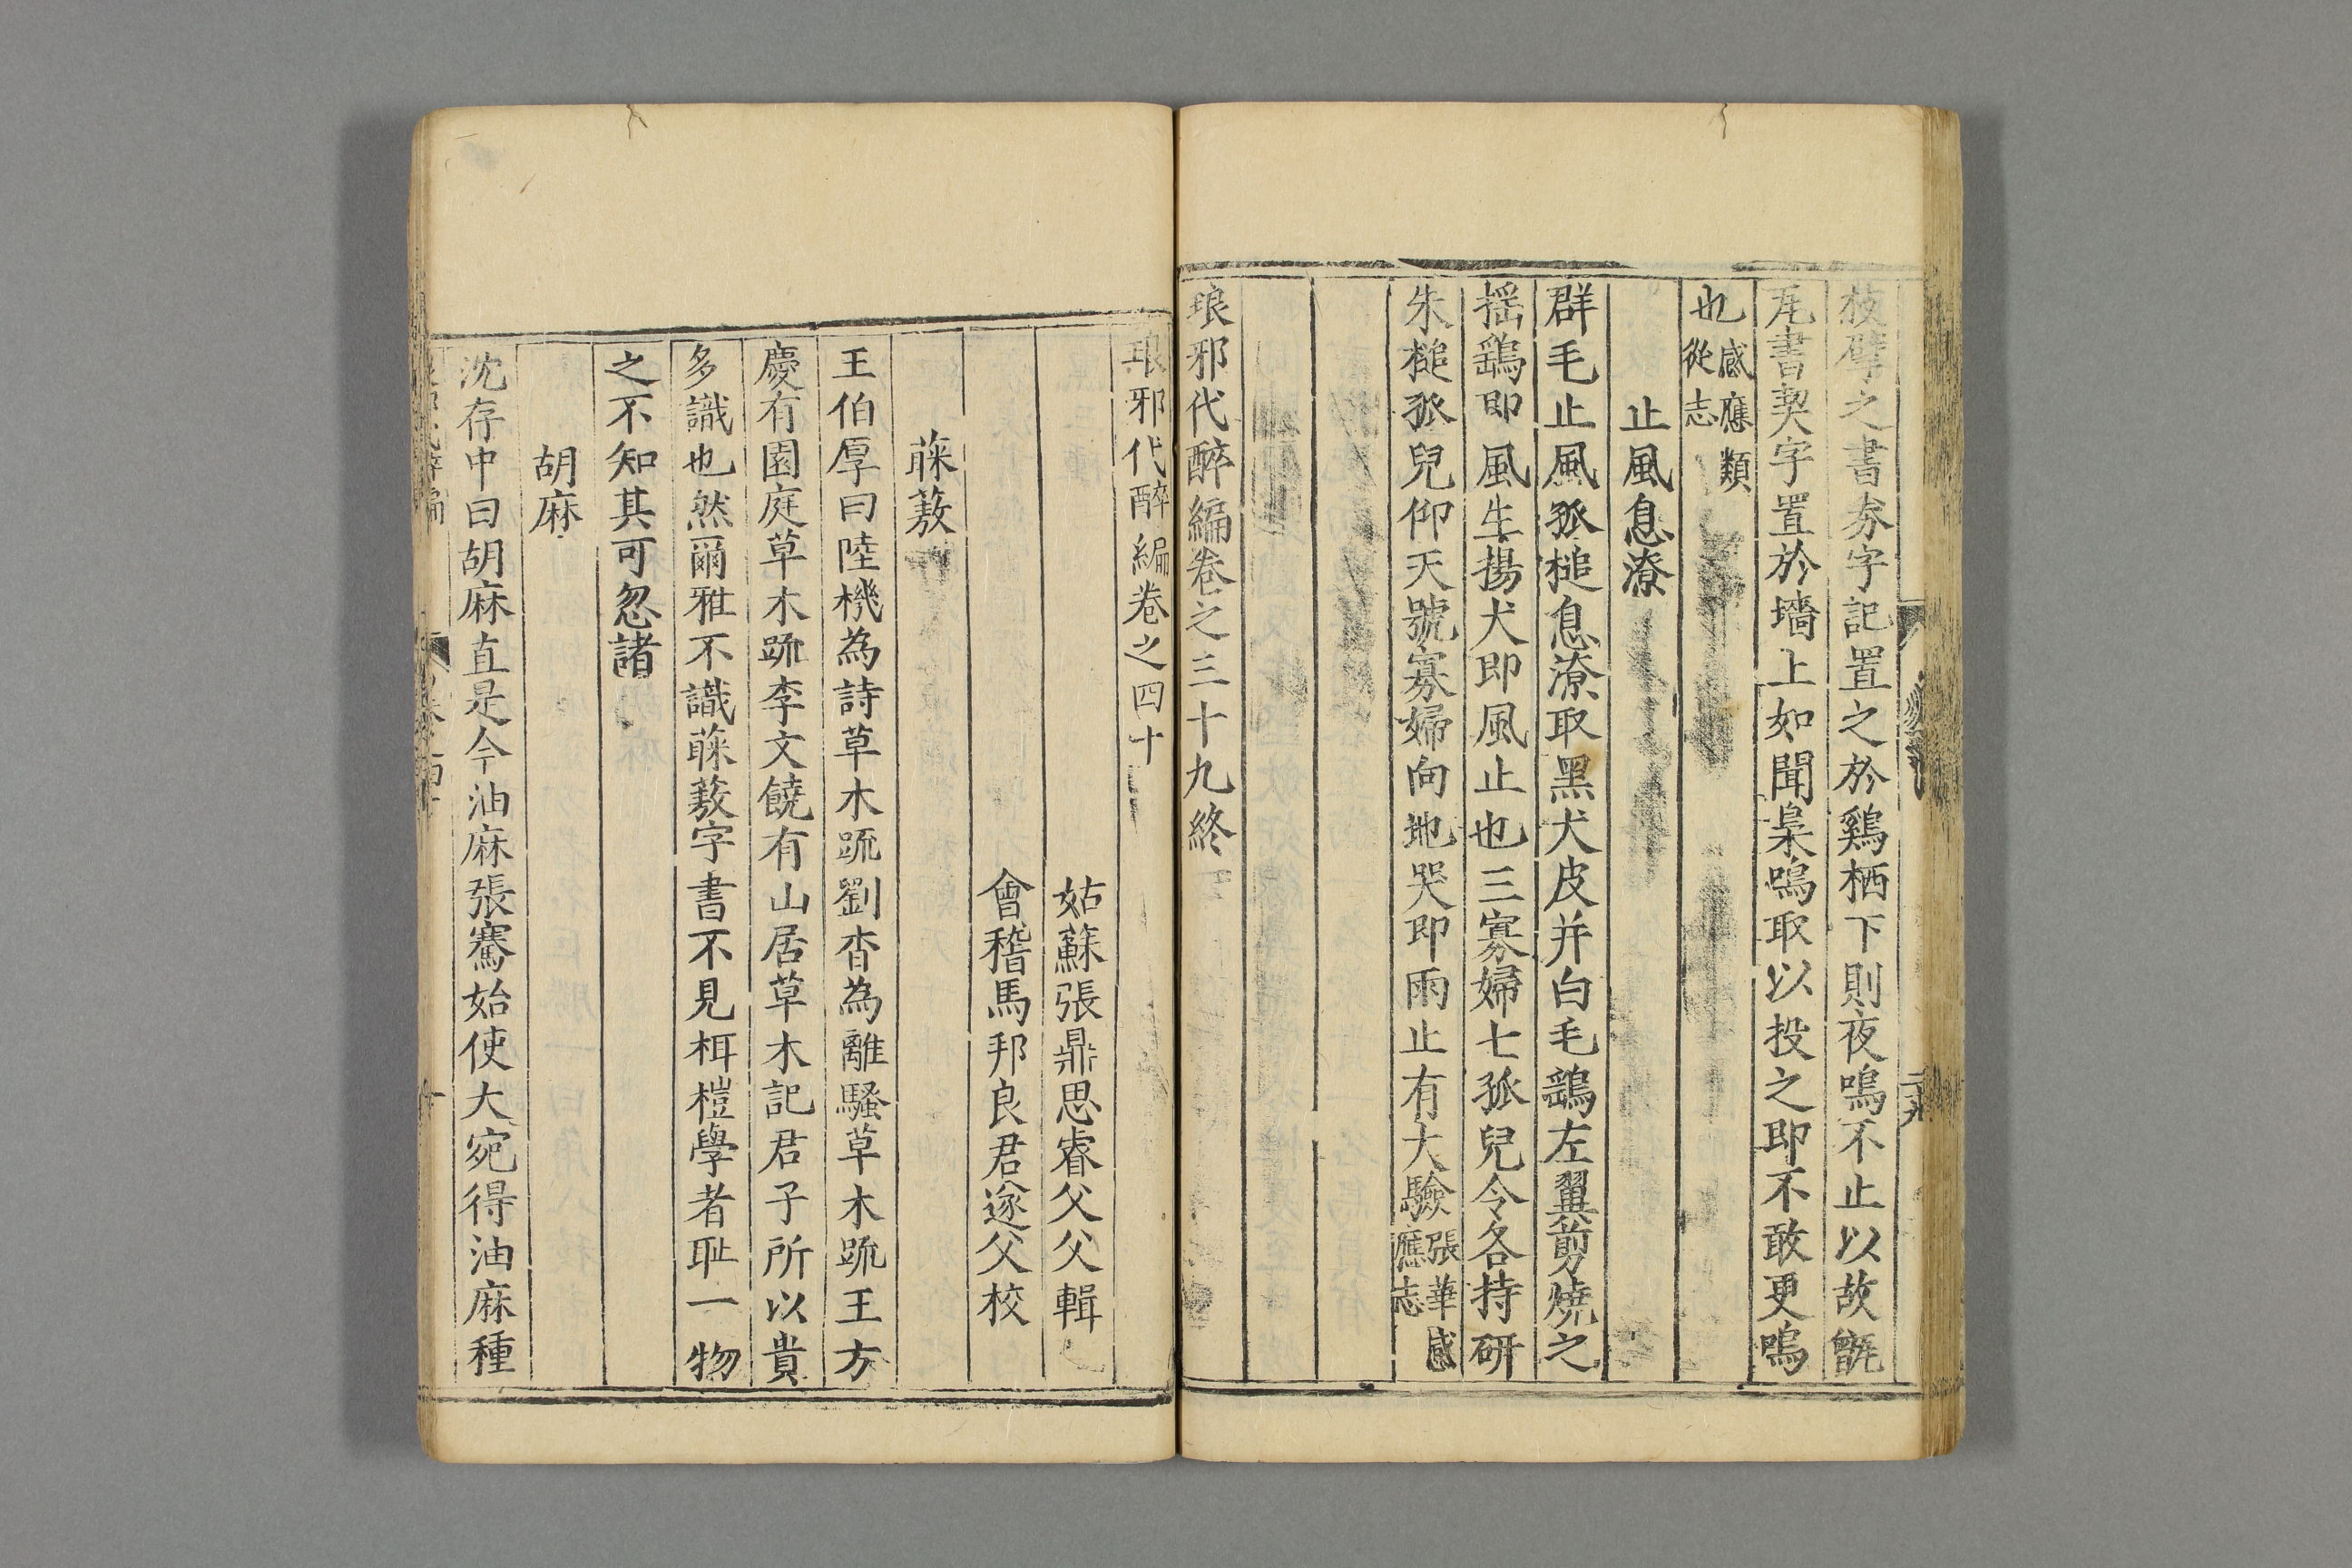 枝擘之書夯字記置之於鷄栖下則夜鳴不止以故甑
瓦書契字置於墻上如聞梟鳴取以投之即不敢更鳴
也感應類從志
止風息潦
群毛止風孤槌息潦取黑犬皮并白毛鷂左翼剪燒之
揺鷂即風生揚犬即風止也三寡婦七孤兒令各持研
朱槌孤兒仰天號寡婦向地哭即雨止有大驗張華感應志
琅邪代醉編卷之三十九終
琅邪代醉編卷之四十
姑蘇張鼎思睿父父輯
會稽馬邦良君遂父校
蔝蔜
王伯厚曰陸機為詩草木䟽劉杳為離騷草木䟽王方
慶有園庭草木䟽李文饒有山居草木記君子所以貴
多識也然爾雅不識蔝蔜字書不見栮榿學者耻一物
之不知其可忽諸
胡麻
沈存中曰胡麻直是今油麻張騫始使大宛得油麻種